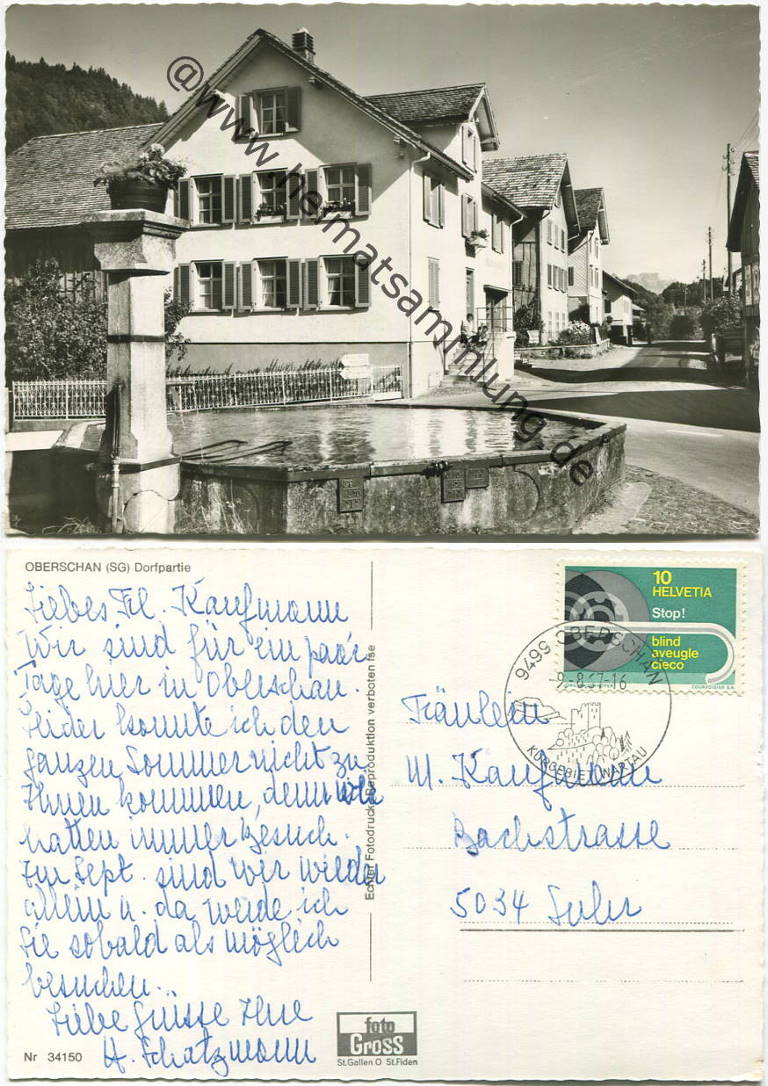 @www.heimatsammlung.de
OBERSCHAN (SG) Dorfpartie
Liebes Frl. Kaufmann
Wir sind für ein paar
Tage hier in Oberschan.
Leider konnte ich den
ganzen Sommer nicht zu
Ihnen kommen, denn wir
hatten immer Besuch.
Im Sept. sind wir wieder
allein u. da werde ich
Sie sobald als möglich
besuchen.
Liebe Grüsse Ihre
H. Schatzmann
Nr 34150
Echter Fotodruck Reproduktion verboten fse
foto
GROSS
St.Gallen O St.Fiden
10
HELVETIA
Stop!
blind
aveugle
cieco
COURVOISIER S.A.
9499 OBERSCHAN
9.-8.67-16
KURGEBIET WARTAU
Fräulein
M. Kaufmann
Bachstrasse
5034 Suhr